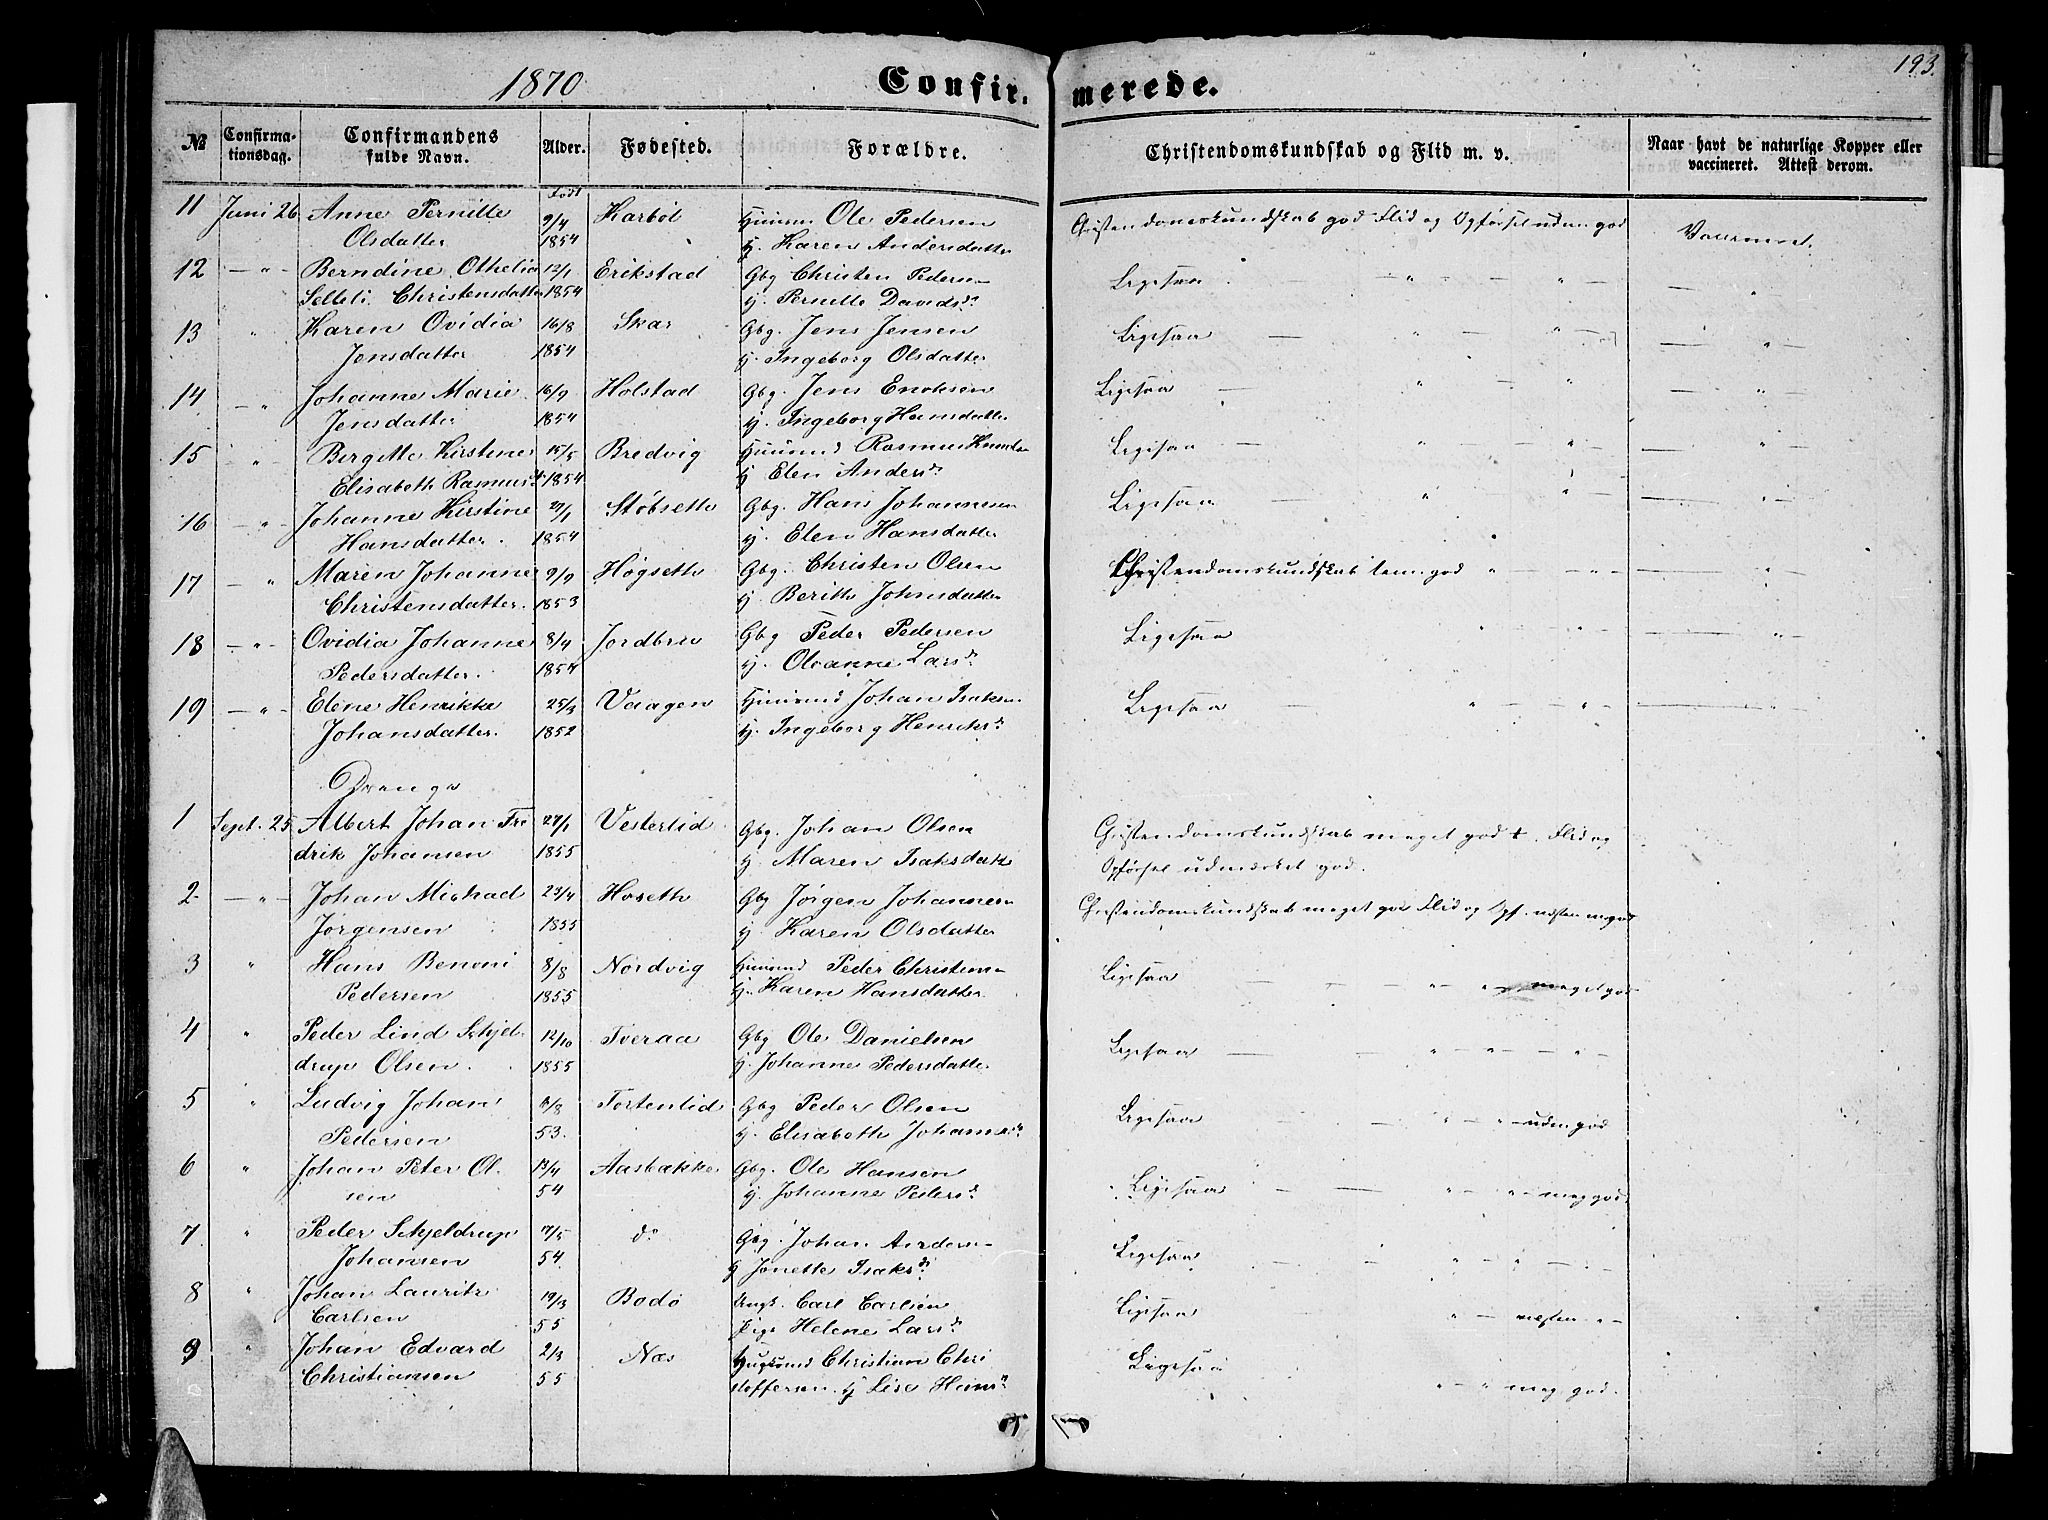 193.
1870
Confir- merede.
№ Confirma- tionsdag. Confirmandens fulde Navn. Alder. Fødested. Forældre. Christendomskundskab og Flid m. v. Naar havt de naturlige Kopper eller vaccineret. Attest derom.
Født
11 Juni 26 Anne Pernille 9/4 Karbøl Ole Pedersen Christendomskundskab god Flid og Opførsel udm god
Olsdatter 1854 H. Karen Andersdatter
12 — " — Berndine Othelia 12/1 Erikstad Gbg Christen Peders Ligesaa
Selleli Christensdatter 1854 H. Pernille Davidsd.
13 " Karen Ovidia 16/8 Skar Gbg. Jens Jensen Ligesaa
Jensdatter 1854 H. Ingeborg Olsdatter
14 — " Johanne Marie 16/9 Holstad Gbg. Jens Enoksen Ligesaa
Jensdatter 1854 H. Ingeborg Hansdatter
15 " Bergitte Kirstine 15/5 Bredvig Huusmd Rasmus Ligesaa
Elisabeth Rasmusd. 1854 H Elen Andersd.
16 — " — Johanne Kirstine 27/1 Støbseth Gbg. Hans Johannesen Ligesaa
Hansdatter. 1854 H. Elen Hansdatter
17 — " Maren Johanne 9/9 Høgseth Gbg. Christen Olsen Christendomskundskab tem. god
Christensdatter. 1853 H. Berith Johnsdatter
18 — " — Ovidia Johanne 8/4 Jordbru Gbg Peder Pedersen Ligesaa
Pedersdatter. 1854 H. Oleanne Larsd.
19 — " — Elene Henrikke 25/3 Vaagen Huusmd Johan Isaksen Ligesaa
Johansdatter. 1852 H. Ingeborg Henriksd.
Drenge
1 Sept. 25 Albert Johan Fre 27/1 Vesterlid Gbg. Johan Olsen Christendomskundskab meget god +. Flid og
drik Johansen 1855 H. Maren Isaksdatt Opførsel udmærket god.
2 — " Johan Michael 23/4 Hoseth Gbg Jørgen Johannesen Christendomskundskab meget god Flid og Opf. næsten m god
Jørgensen 1855 H Karen Olsdatter
3 " Hans Benoni 8/8 Nordvig Huusmd Peder Christens Ligesaa
Pedersen 1855 H. Karen Hansdatter. " " meget god
4 " Peder Lind Schjel- 12/10 Tveraa Gbg Ole Danielsen Ligesaa
drup Olsen. 1855 H. Johanne Pedersdatter
5 " Ludvig Johan /8 Tortenlid Gbg Peder Olsen Ligesaa " " udm god
Pedersen 53. H. Elisabeth Johannesd.
6 " Johan Peter Ol- 13/4 Aasbakke Gbg. Ole Hansen Ligesaa " " meg god
sen 54 H. Johanne Pedersd.
7 " Peder Schjeldrup 17/5 do Gbg. Johan Anders Ligesaa
Johansen 54. H Jonette Isaksd.
8 " Johan Lauritz 19/3 Bodø Ungk. Carl Carlsen Ligesaa " næsten "
Carlsen 55 Pige Helene Larsd.
9 " Johan Edvard 2/3 Næs Christian Chri Ligesaa
Christiansen 55 stoffersen. H Lise Hansd. " " meg god.